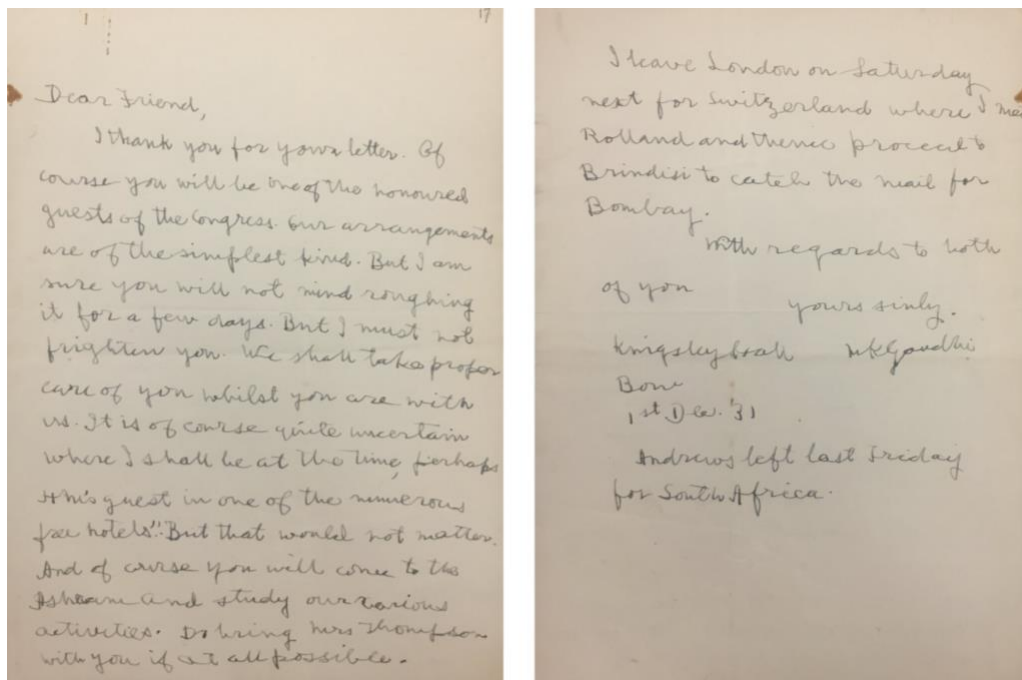 17
Dear Friend,
I thank you for your letter. Of
course you will be one of the honoured
guests of the Congress. Our arrangements
are of the simplest kind. But I am
sure you will not mind roughing
it for a few days. But I must not
frighten you. We shall take proper
care of you whilst you are with
us. It is of course quite uncertain
where I shall be at the time, perhaps
HM's guest in one of the numerous
free hotels". But that would not matter.
And of course you will come to the
Ashram and study our various
activities. Do bring Mrs Thompson
with you if at all possible.
I leave London on Saturday
next for Switzerland where I
Rolland and thence proceed to
Brindisi to catch the mail for
Bombay.
With regards to both
of you
yours sinly.
Kingsley hall MKGandhi
Bow
1st Dec. '31
Andrews left last Friday
for South Africa.